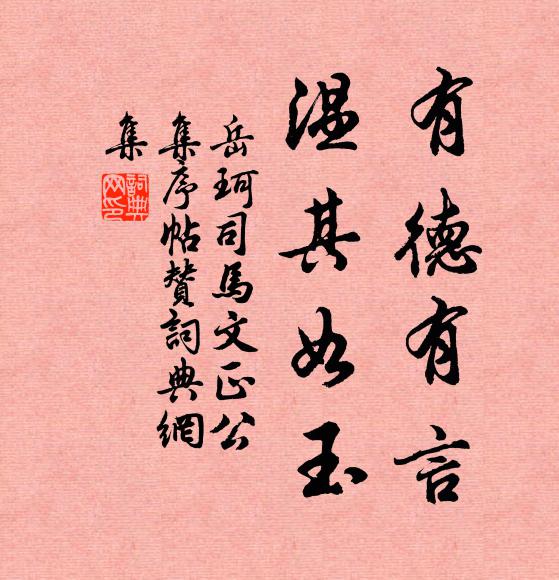 有德有言
温其如玉
岳珂司馬文正公
集序帖贊詞典網
集
詞典網印